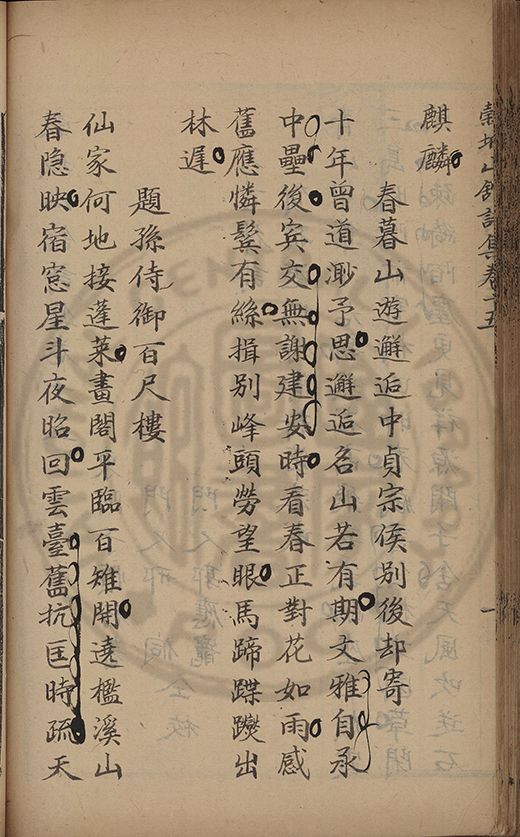 詩集卷十五
一
麒麟
春暮山遊邂逅中貞宗侯別後却寄
十年曾道渺予思邂逅名山若有期文雅自承
中壘後賓交無謝建安時看春正對花如雨感
舊應憐鬓有絲揖別峰頭勞望眼馬蹄蹀躞出
林遲
題孫侍御百尺樓
仙家何地接蓬萊畫閣平臨百雉開遶檻溪山
春隐映宿窓星斗夜昭回雲臺舊抗匡時疏天